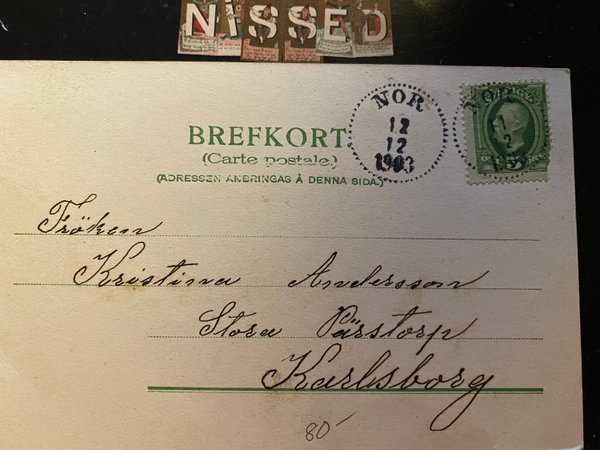 NiSSED
NOR
12
12
1903
BREFKORT.
(Carte postale)
(ADRESSEN ANBRINGAS Å DENNA SIDA.)
Fröken
Kristina Andersson
Stora Pärstorp
Karlsborg
80-